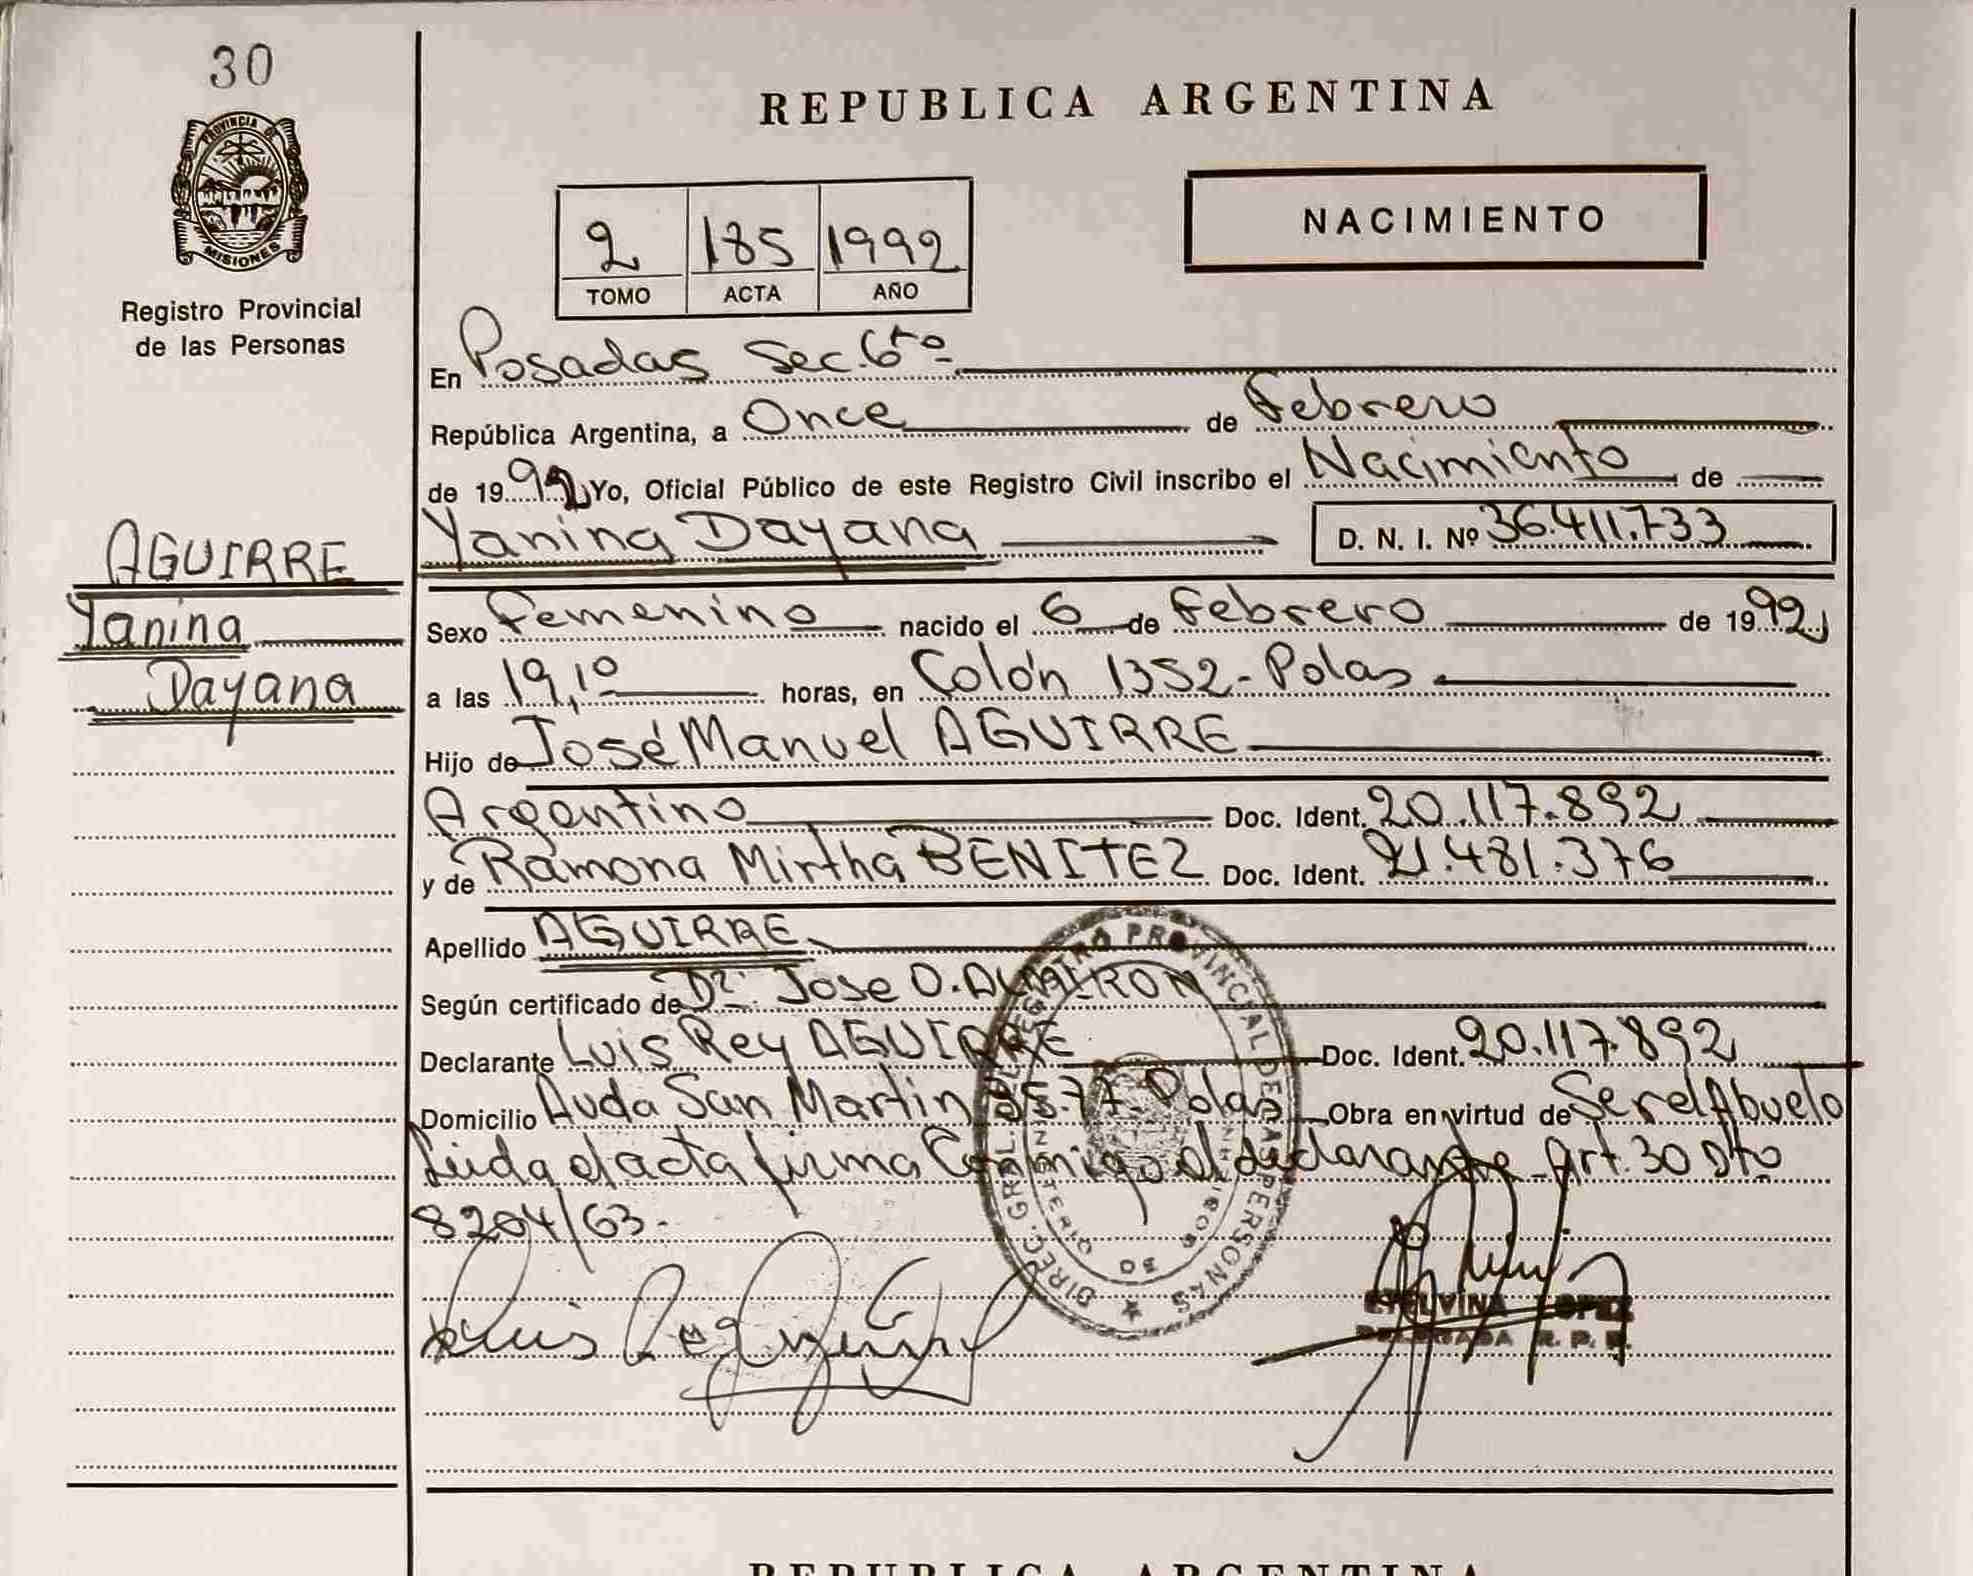 30
PROVINCIA DE
MISIONES
Registro Provincial
de las Personas
REPUBLICA ARGENTINA
NACIMIENTO
2 185 1992
TOMO ACTA AÑO
En Posadas Sec. 6ta
República Argentina, a Once de Febrero
de 1992 Yo, Oficial Público de este Registro Civil inscribo el Nacimiento de
Yanina Dayana D. N. I. Nº 36.411.733
AGUIRRE
Yanina
Dayana
Sexo Femenino nacido el 6 de Febrero de 1992
a las 19,10 horas, en Colón 1352 - Pdas
Hijo de José Manuel AGUIRRE
Argentino Doc. Ident. 20.117.892
y de Ramona Mirtha BENITEZ Doc. Ident. 21.481.376
Apellido AGUIRRE
Según certificado de Dr. Jose O. ALMIRON
Declarante Luis Rey AGUIRRE Doc. Ident. 20.117.892
Domicilio Avda San Martin Pdas Obra en virtud de Ser el Abuelo
Leida el acta firma Conmigo el declarante - Art. 30 Dto
8204/63.-
DIREC. GRAL. DEL REGISTRO PROVINCIAL DE LAS PERSONAS
ETELVINA LOPEZ
DELEGADA R. P. P.
REPUBLICA ARGENTINA